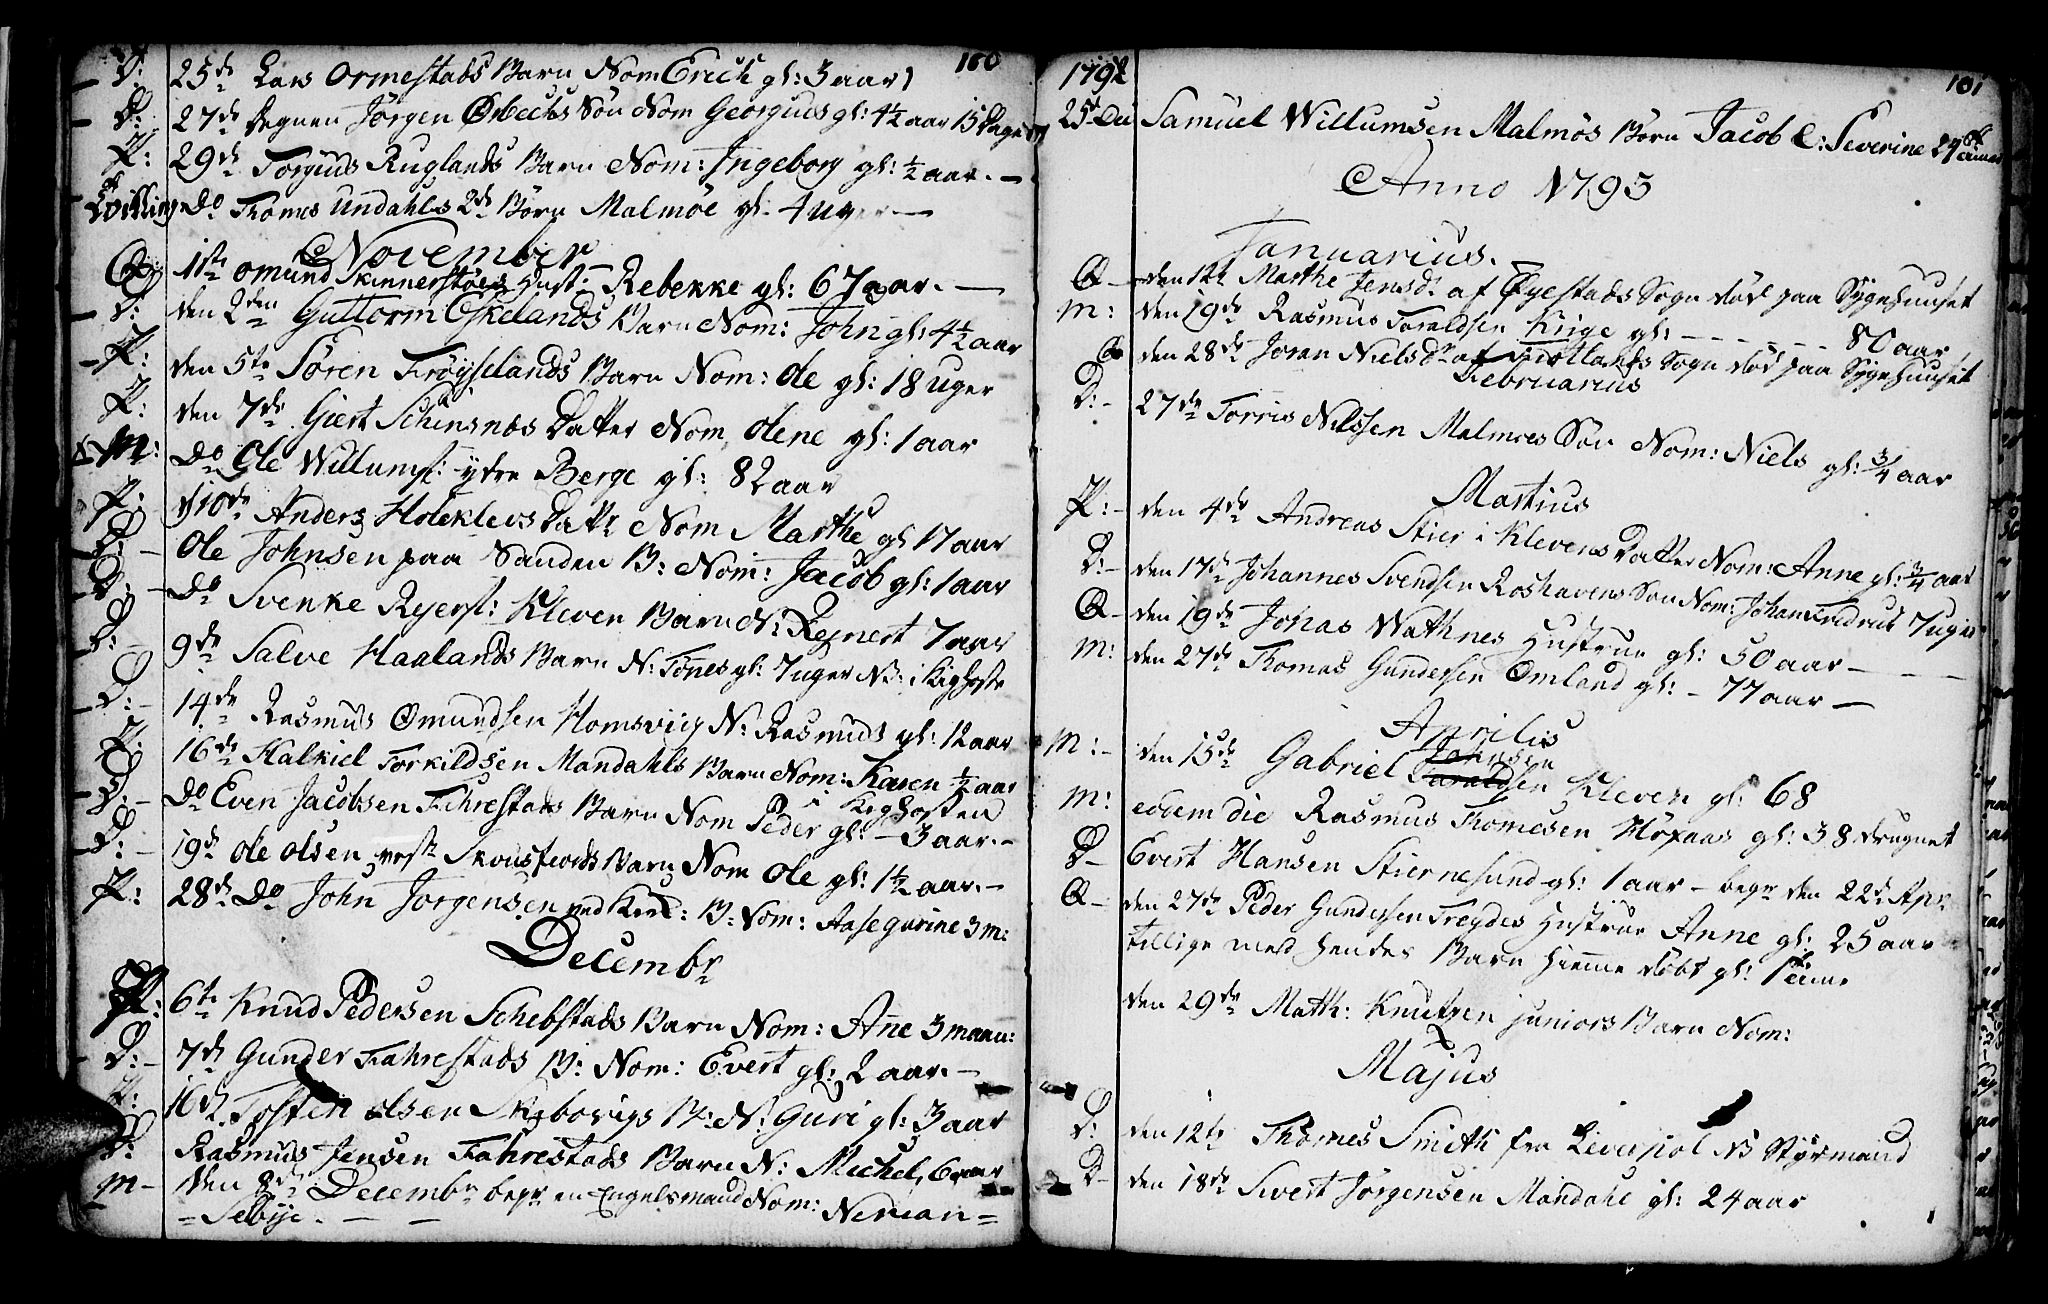 160
D: 25de Lars Ormestads Barn Nom Erich gl: 3 aar
D: 27de degnen Jörgen Ørbechs Sön Nom Georgius gl: 4½ aar 15 dage
P: 29de Torgius Ruglands Barn Nom: Ingeborg gl: ½ aar. —
do Thomes Undahls 2de Børn Malmöe gl. 4 uger —
November
Q: 1ste Omund Skinnerstöes Hust: Rebekke gl: 67 aar. —
D: den 2den Guttorm Eskelands Barn Nom: John gl: 4½ aar
P: den 5te Sören Fröyselands Barn Nom: Ole gl: 18 uger
P: den 7de Giert Schinsnes Datter Nom Olene gl: 1 aar
M: do Ole Willums: ytre Berge gl: 82 aar
P: d 10de Anders Holeklevs Datt: Nom Marthe gl 17 aar
D: — Ole Johnsen paa Sanden B: Nom: Jacob gl: 1 aar
D: — do Svenke Reyers: Kleven Barn N: Reinert 7 aar
D: 9de Salve Haalands Barn N: Tönes gl: 7 uger NB: i Kighoste
D: — 14de Rasmus Omundsen Homsviig N: Rasmus gl: 12 aar
P: 16de Halkiel Torkildsen Mandahls Barn Nom: Karen ½ aar
D: — do Even Jacobsen Fahrestads Barn Nom Peder gl: — 3 aar. — Kighosten
D: — 19de Ole Olsen vest Skousfiords Barn Nom Ole gl: 1½ aar. —
P: 28de do John Jörgensen ved Kirk: B: Nom: Aase Gurine 3 m:
Decembr
P: 6te Knud Pedersen Schebstads Barn Nom: Anne 3 maan:
D: — 7de Gunder Fahrestads B: Nom: Evert gl: 2 aar. —
P: 16de Tosten Olsen Skybovigs B: N: Guri gl: 3 aar
D: Rasmus Jensen Fahrestads Barn N: Michel, 6 aar
M — den 8de Decembr begr en Engelsmand Nom: Nerian=
=Selbye. — —
1792 101
25de Dec Samuel Willumsen Malmös Børn Jacob &: Severine
Anno 1793
Januarius.
Q — den 1te Marthe Jensdr af Øyestads Sogn död paa Sygehuuset
M: den 19de Rasmus Taraldsen Krige gl: — — — — — 80 aar
Q den 28de Joran Nielsdr af Sogn död paa Sygehuuset
Februarius
D: — 27de Torris Nilssen Malmoes Sön Nom: Niels gl: ¾ aar
Martius
P: — den 4de Andreas Stier i Klevens Datter Nom: Anne gl: ¾ aar
D: — den 17de Johannes Svendsen Roshavens Sön Nom: Johan 7 uger
Q — den 19de Jonas Wathnes Hustrue gl: 50 aar —
M: den 27de Thomas Gundersen Omland gl: — 77 aar —
Aprilis
Johnsen
M: — den 15de Gabriel Taraldsen Kleven gl: 68
M: eodem die Rasmus Thomesen Höxaas gl: 38 druknet
D — Evert Hansen Stiernesund gl: 1 aar — begr den 22de Apr:
Q — den 27de Peder Gundersen Freydes Hustrue Anne gl: 25 aar
tillige med hendes Barn hiemme döbt gl: 1 time
den 29de Matth: Knutzen juniors Barn Nom:
Majus
D: den 12te Thomes Smith fra Liverpol NB Styrmand
D — den 18de Sivert Jörgensen Mandahl gl: 24 aar